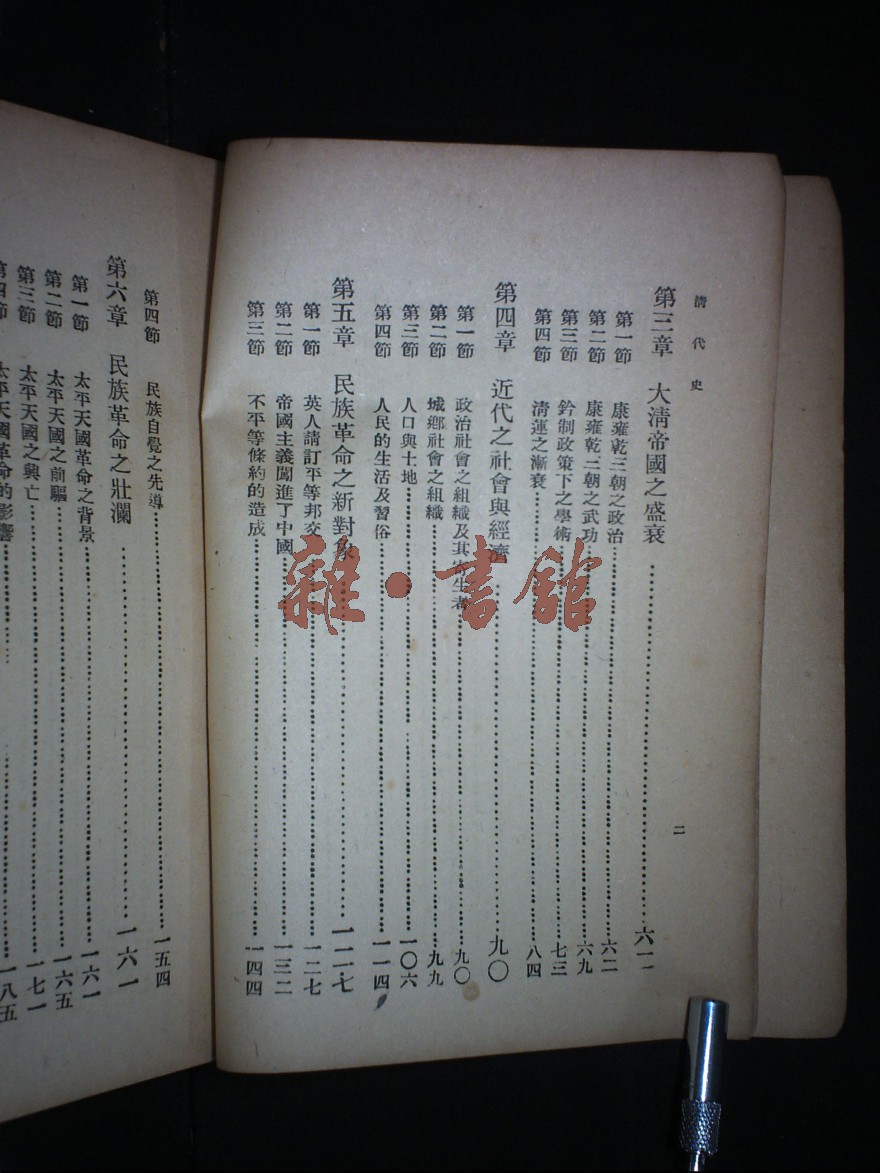 清代史
二
第三章 大清帝國之盛衰…………六二
第一節 康雍乾三朝之政治…………六二
第二節 康雍乾三朝之武功…………六九
第三節 鈐制政策下之學術…………七三
第四節 清運之漸衰…………八四
第四章 近代之社會與經濟…………九〇
第一節 政治社會之組織及其寄生者…………九〇
第二節 城鄉社會之組織…………九九
第三節 人口與土地…………一〇六
第四節 人民的生活及習俗…………一一四
第五章 民族革命之新對象…………一二七
第一節 英人請訂平等邦交…………一二七
第二節 帝國主義闖進了中國…………一三二
第三節 不平等條約的造成…………一四四
第四節 民族自覺之先導…………一五四
第六章 民族革命之壯瀾…………一六一
第一節 太平天國革命之背景…………一六一
第二節 太平天國之前驅…………一六五
第三節 太平天國之興亡…………一七一
第四節 太平天國革命的影響…………一八五
雜·書館